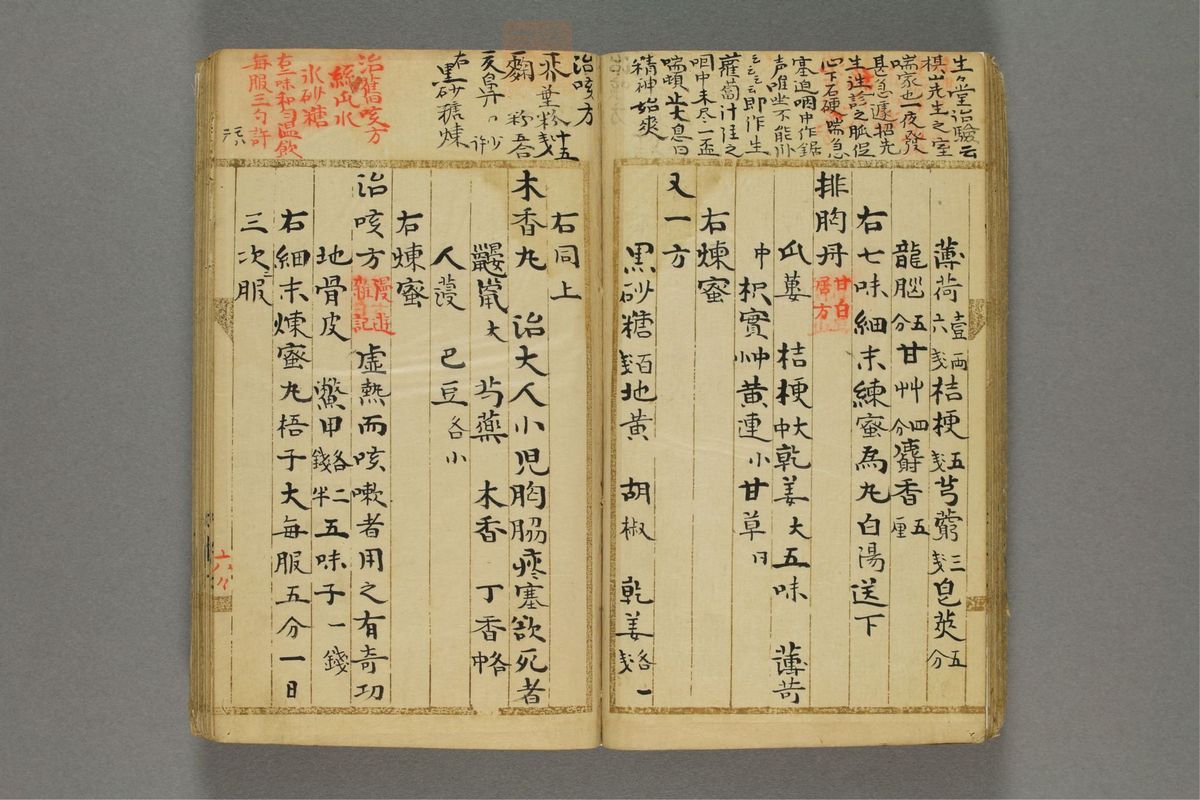 生々堂治驗云
棋山先生之室
喘家也一夜發
甚急遽招先
生進診之脈促
心下石硬喘急
塞迫咽中作鋸
声唯坐不能卧
云云云即作生
蘿蔔汁注之
咽中未尽一盃
喘頓止大息曰
精神始爽
薄荷壹兩六戔桔梗五戔芎藭三戔皂莢五分
龍腦五分甘艸四分麝香五厘
右七味細末練蜜為丸白湯送下
排胸丹甘白屠方
瓜蔞 桔梗大中乾姜大五味 薄荷
中枳實艸中黄連小甘草同
右煉蜜
又一方
黒砂糖百戔地黄 胡椒 乾姜各一戔
治咳方
粉十五戔
粉五合
亥鼻
右黒砂糖煉
治舊咳方
絲瓜水
氷砂糖
右二味和匀温飲
毎服三勺許
右同上
木香丸 治大人小児胸脇痰塞欲死者
鼴鼠大 芍薬 木香 丁香各中
人蓡 巴豆各小
右煉蜜
治咳方漫遊雜記 虚熱而咳嗽者用之有奇功
地骨皮 鱉甲各二錢半五味子一錢
右細末煉蜜丸梧子大毎服五分一日
三次ニ服
六八